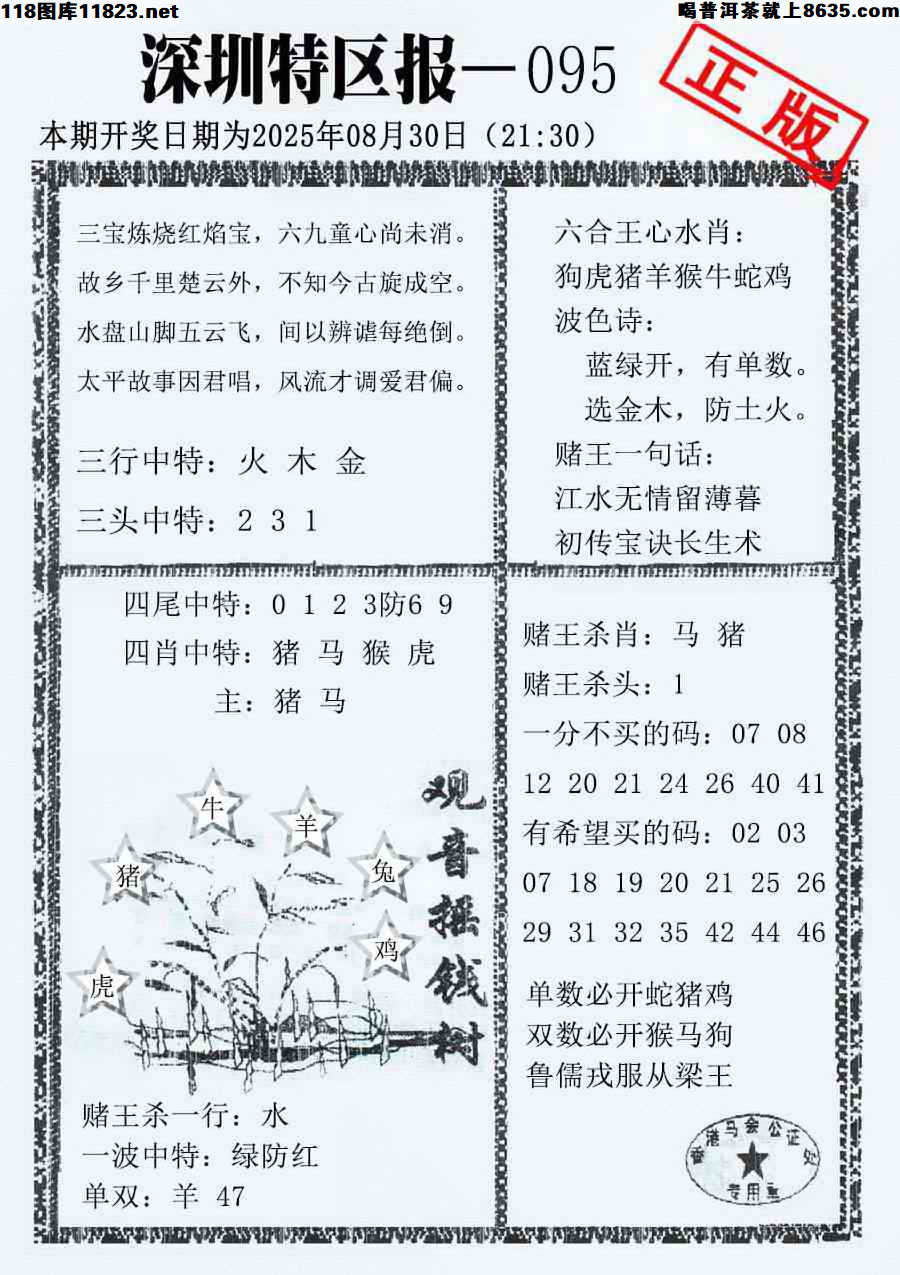 118图库11823.net
喝普洱茶就上8635.com
深圳特区报—095
正版
本期开奖日期为2025年08月30日（21:30）
三宝炼烧红焰宝，六九童心尚未消。
故乡千里楚云外，不知今古旋成空。
水盘山脚五云飞，间以辨谑每绝倒。
太平故事因君唱，风流才调爱君偏。
三行中特：火 木 金
三头中特：2 3 1
六合王心水肖：
狗虎猪羊猴牛蛇鸡
波色诗：
蓝绿开，有单数。
选金木，防土火。
赌王一句话：
江水无情留薄暮
初传宝诀长生术
四尾中特：0 1 2 3防6 9
四肖中特：猪 马 猴 虎
主：猪 马
牛
羊
猪
兔
鸡
虎
观音摇钱树
赌王杀一行：水
一波中特：绿防红
单双：羊 47
赌王杀肖：马 猪
赌王杀头：1
一分不买的码：07 08
12 20 21 24 26 40 41
有希望买的码：02 03
07 18 19 20 21 25 26
29 31 32 35 42 44 46
单数必开蛇猪鸡
双数必开猴马狗
鲁儒戎服从梁王
香港马会公证处
专用章